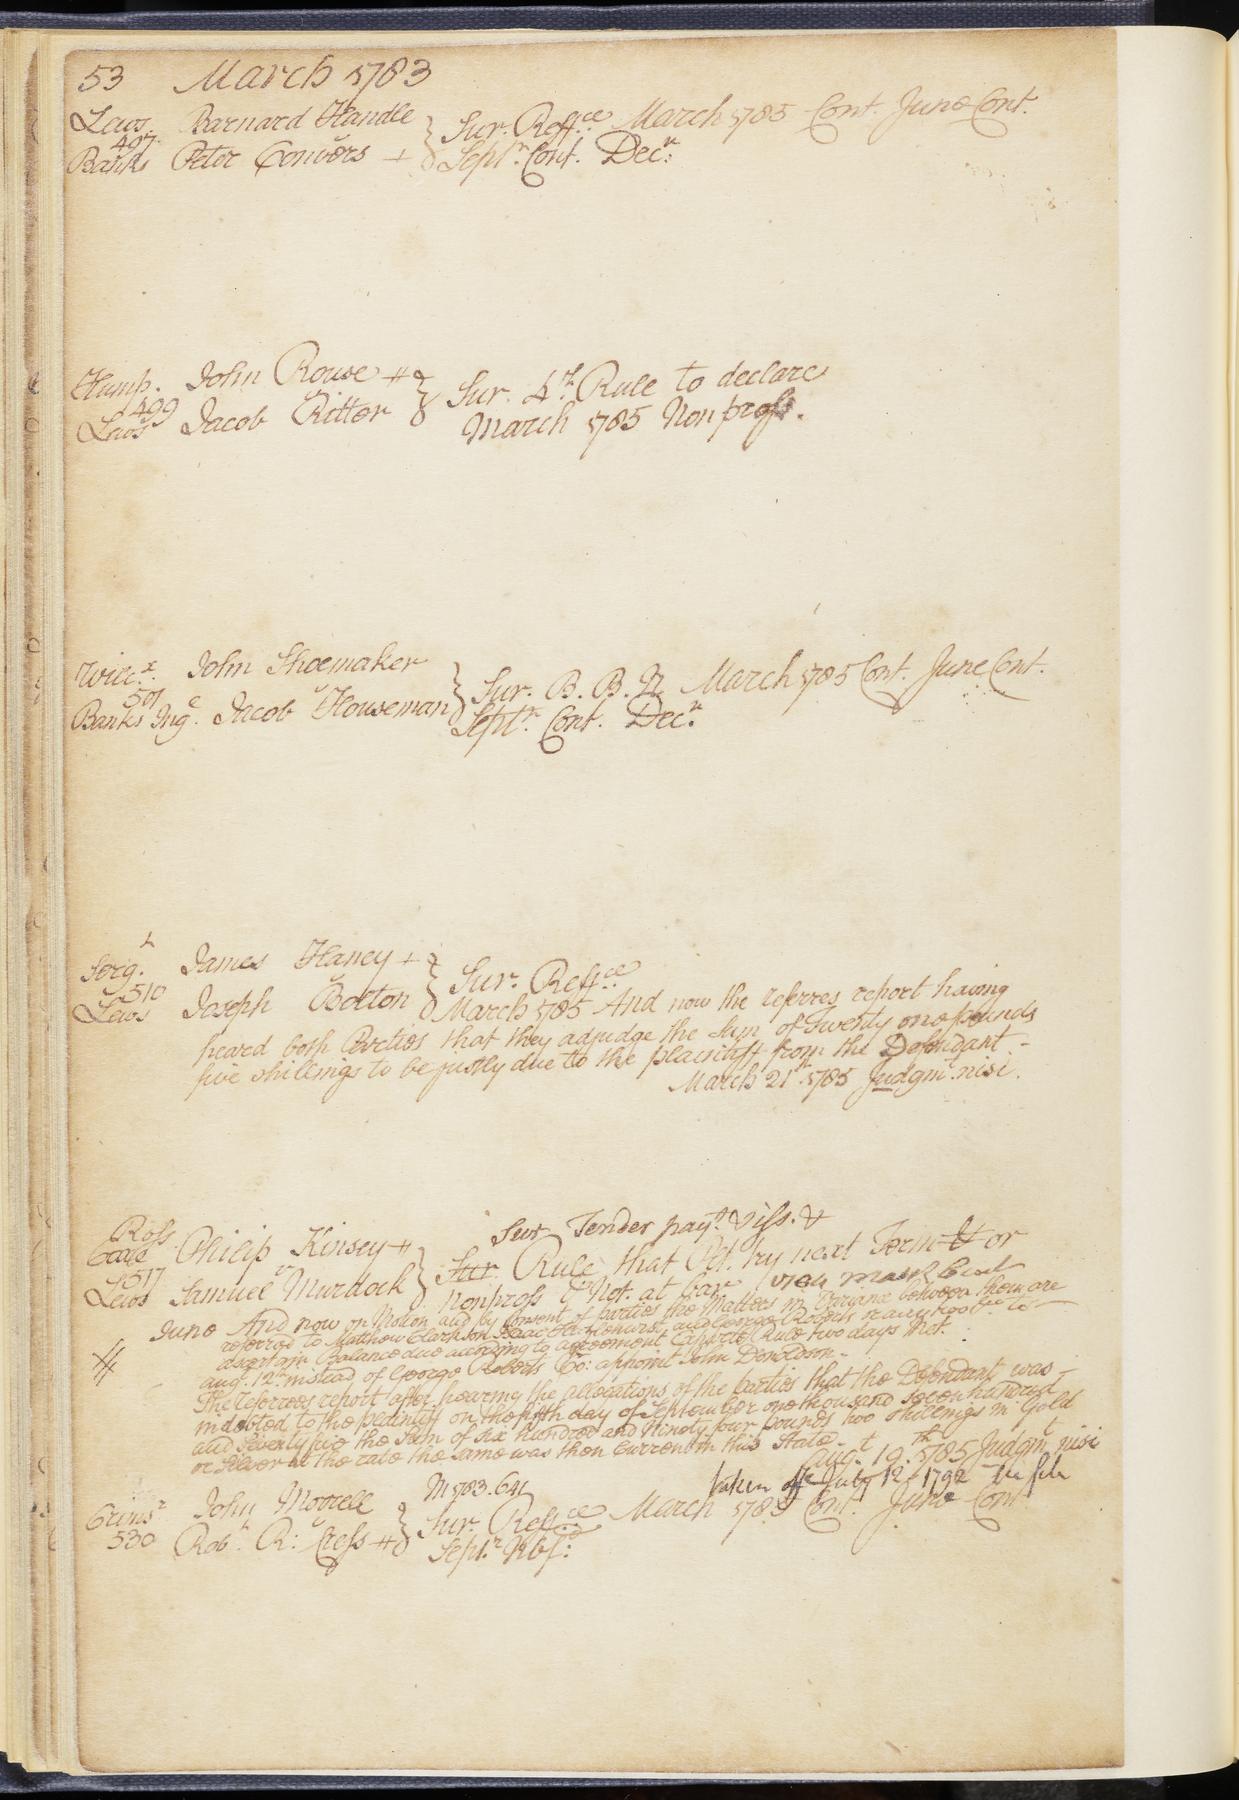 53 March 1783
Lews. Barnard Handle } Sur. Reff.ce March 1785 Cont. June Cont.
497
Banks Peter Convers + Sept.r Cont. Dec.r
Hump. John Rouse + } Sur. 4.th Rule to declare
499
Lews Jacob Ritter March 1785 Non pross.
Wilc.x John Shoemaker } Sur. B. B. N. March 1785 Cont. June Cont.
501
Banks Ing.e Jacob Houseman Sept.r Cont. Dec.r
Serg.t James Haney + } Sur. Reff.ce
510
Lews Joseph Bolton March 1785 And now the referres report having
heard both Parties that they adjudge the Sum of Twenty one pounds
five shillings to be justly due to the plaintiff from the Defendant -
March 21st. 1785 Judgmt. nisi.
Sur Tender paymt. & iss. &
Ross
Coxe Philip Kinsey + } Sur. Rule that Plt. try next Term & or
517
Lews Samuel Murdock Nonpross & Not. at bar
June And now on Motion and by Consent of parties the Matters in Variance between them are
referred to Matthew Clarkson Isaac Hazlehurst and George Roberts or any two of them to
ascertain Balance due according to agreement Exparte Rule two days Not.
aug. 12th instead of George Roberts Co: appoint John Donoldson -
The referrees report after hearing the allegations of the parties that the Defendant was -
indebted to the plaintiff on the fifth day of September one thousand seven hundred
and Seventy five the Sum of six hundred and Ninety four pounds two shillings in Gold
or Silver at the rate the same was then current in this State -
augt. 19.th 1785 Judgmt nisi
taken off July 12 1792
M 1783. 641
Grims.r John Morrell } Sur. Reff.ce March 1785 Cont. June Cont
530 Rob.t R: Cress + Sept.r